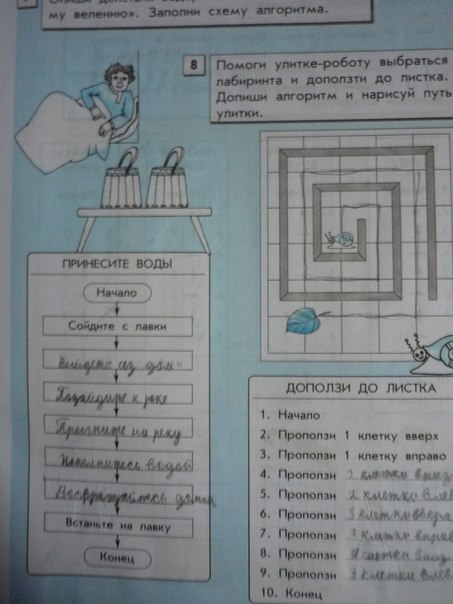 му велению». Заполни схему алгоритма.
8
Помоги улитке-роботу выбраться
лабиринта и доползти до листка.
Допиши алгоритм и нарисуй путь
улитки.
ПРИНЕСИТЕ ВОДЫ
Начало
Сойдите с лавки
Выйдете из дом
Подойдите к реке
Прыгните на реку
Наполнитесь водой
Возвращайтесь домой
Встаньте на лавку
Конец
ДОПОЛЗИ ДО ЛИСТКА
1. Начало
2. Проползи 1 клетку вверх
3. Проползи 1 клетку вправо
4. Проползи 2 клетки вниз
5. Проползи 2 клетки влев
6. Проползи 3 клетки вверх
7. Проползи 3 клетки впра
8. Проползи 4 клетки вниз
9. Проползи 3 клетки влев
10. Конец